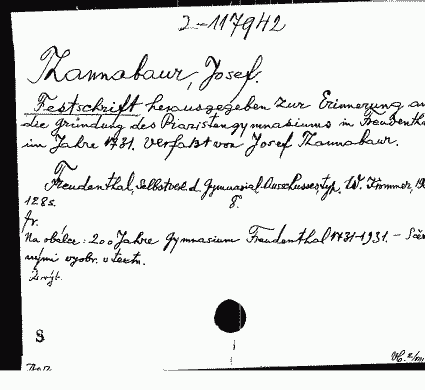 2-117942
Thannabaur, Josef.
Festschrift herausgegeben zur Erinnerung an
die gründung des Piaristengymnasiums in Freudentha
im Jahre 1731. Verfasst von Josef Thannabaur.
Freudenthal, Selbstverl. d. Gymnasial-Ausschusses, typ. W. Krommer, 19
8°.
128 s.
fr.
Na obálce: 200 Jahre Gymnasium Freudenthal 1731-1931. -
vyobr. v textu.
S